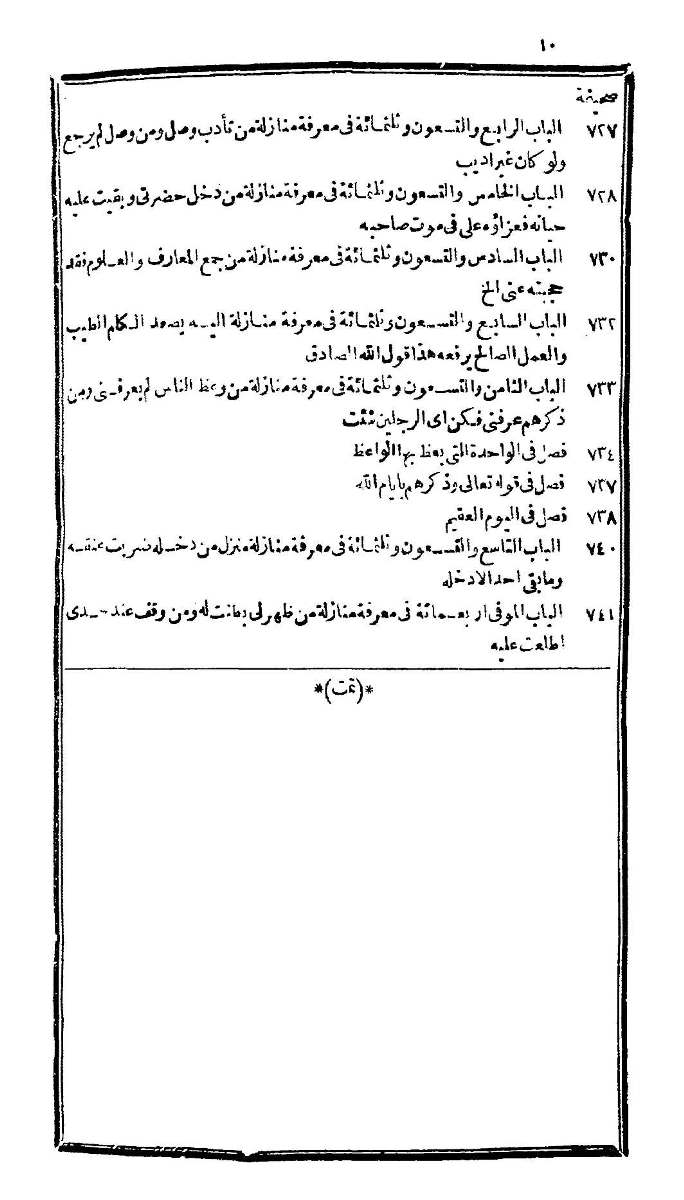 ١٠
صحيفة
٧٢٧ الباب الرابع والتسعون وثلثمائة فى معرفة منازلة من تأدب وصل ومن وصل لم يرجع
ولو كان غير اديب
٧٢٨ الباب الخامس والتسعون وثلثمائة فى معرفة منازلة من دخل حضرتى وبقيت عليه
حياته فعزاؤه على فى موت صاحبه
٧٣٠ الباب السادس والتسعون وثلثمائة فى معرفة منازلة من جمع المعارف والعلوم فقد
حجبته عنى الخ
٧٣٢ الباب السابع والتسعون وثلثمائة فى معرفة منازلة اليه يصعد الكلم الطيب
والعمل الصالح يرفعه هذا قول الله الصادق
٧٣٣ الباب الثامن والتسعون وثلثمائة فى معرفة منازلة من وعظ الناس لم يعرفنى ومن
ذكرهم عرفنى فكن اى الرجلين شئت
٧٣٤ فصل فى الواحدة التى يعظ بها الواعظ
٧٣٧ فصل فى قوله تعالى وذكرهم بايام الله
٧٣٨ فصل فى اليوم العقيم
٧٤٠ الباب التاسع والتسعون وثلثمائة فى معرفة منازلة منزل من دخله ضربت عنقه
وما بقى احد الا دخله
٧٤١ الباب الموفى اربعمائة فى معرفة منازلة من ظهر لى بطنت له ومن وقف عند حدى
اطلعت عليه
*(تمت)*